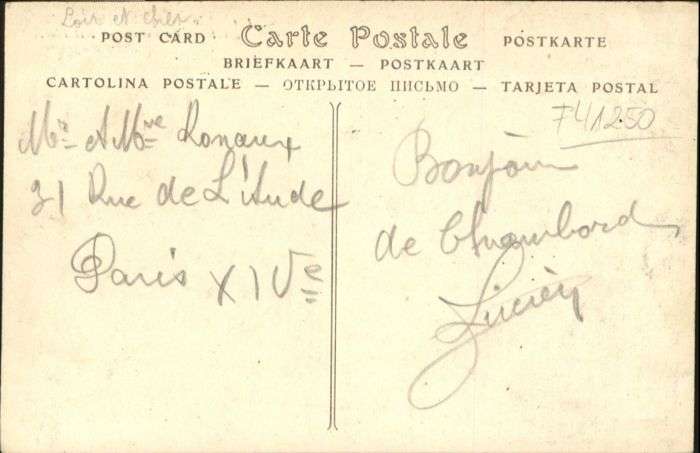 Loir et cher
POST CARD Carte Postale POSTKARTE
BRIEFKAART — POSTKAART
CARTOLINA POSTALE — ОТКРЫТОЕ ПИСЬМО — TARJETA POSTAL
741250
Mr et Mme Ronaux
31 Rue de L'Aude
Paris XIVe
Bonjour
de Chambord
Lucien